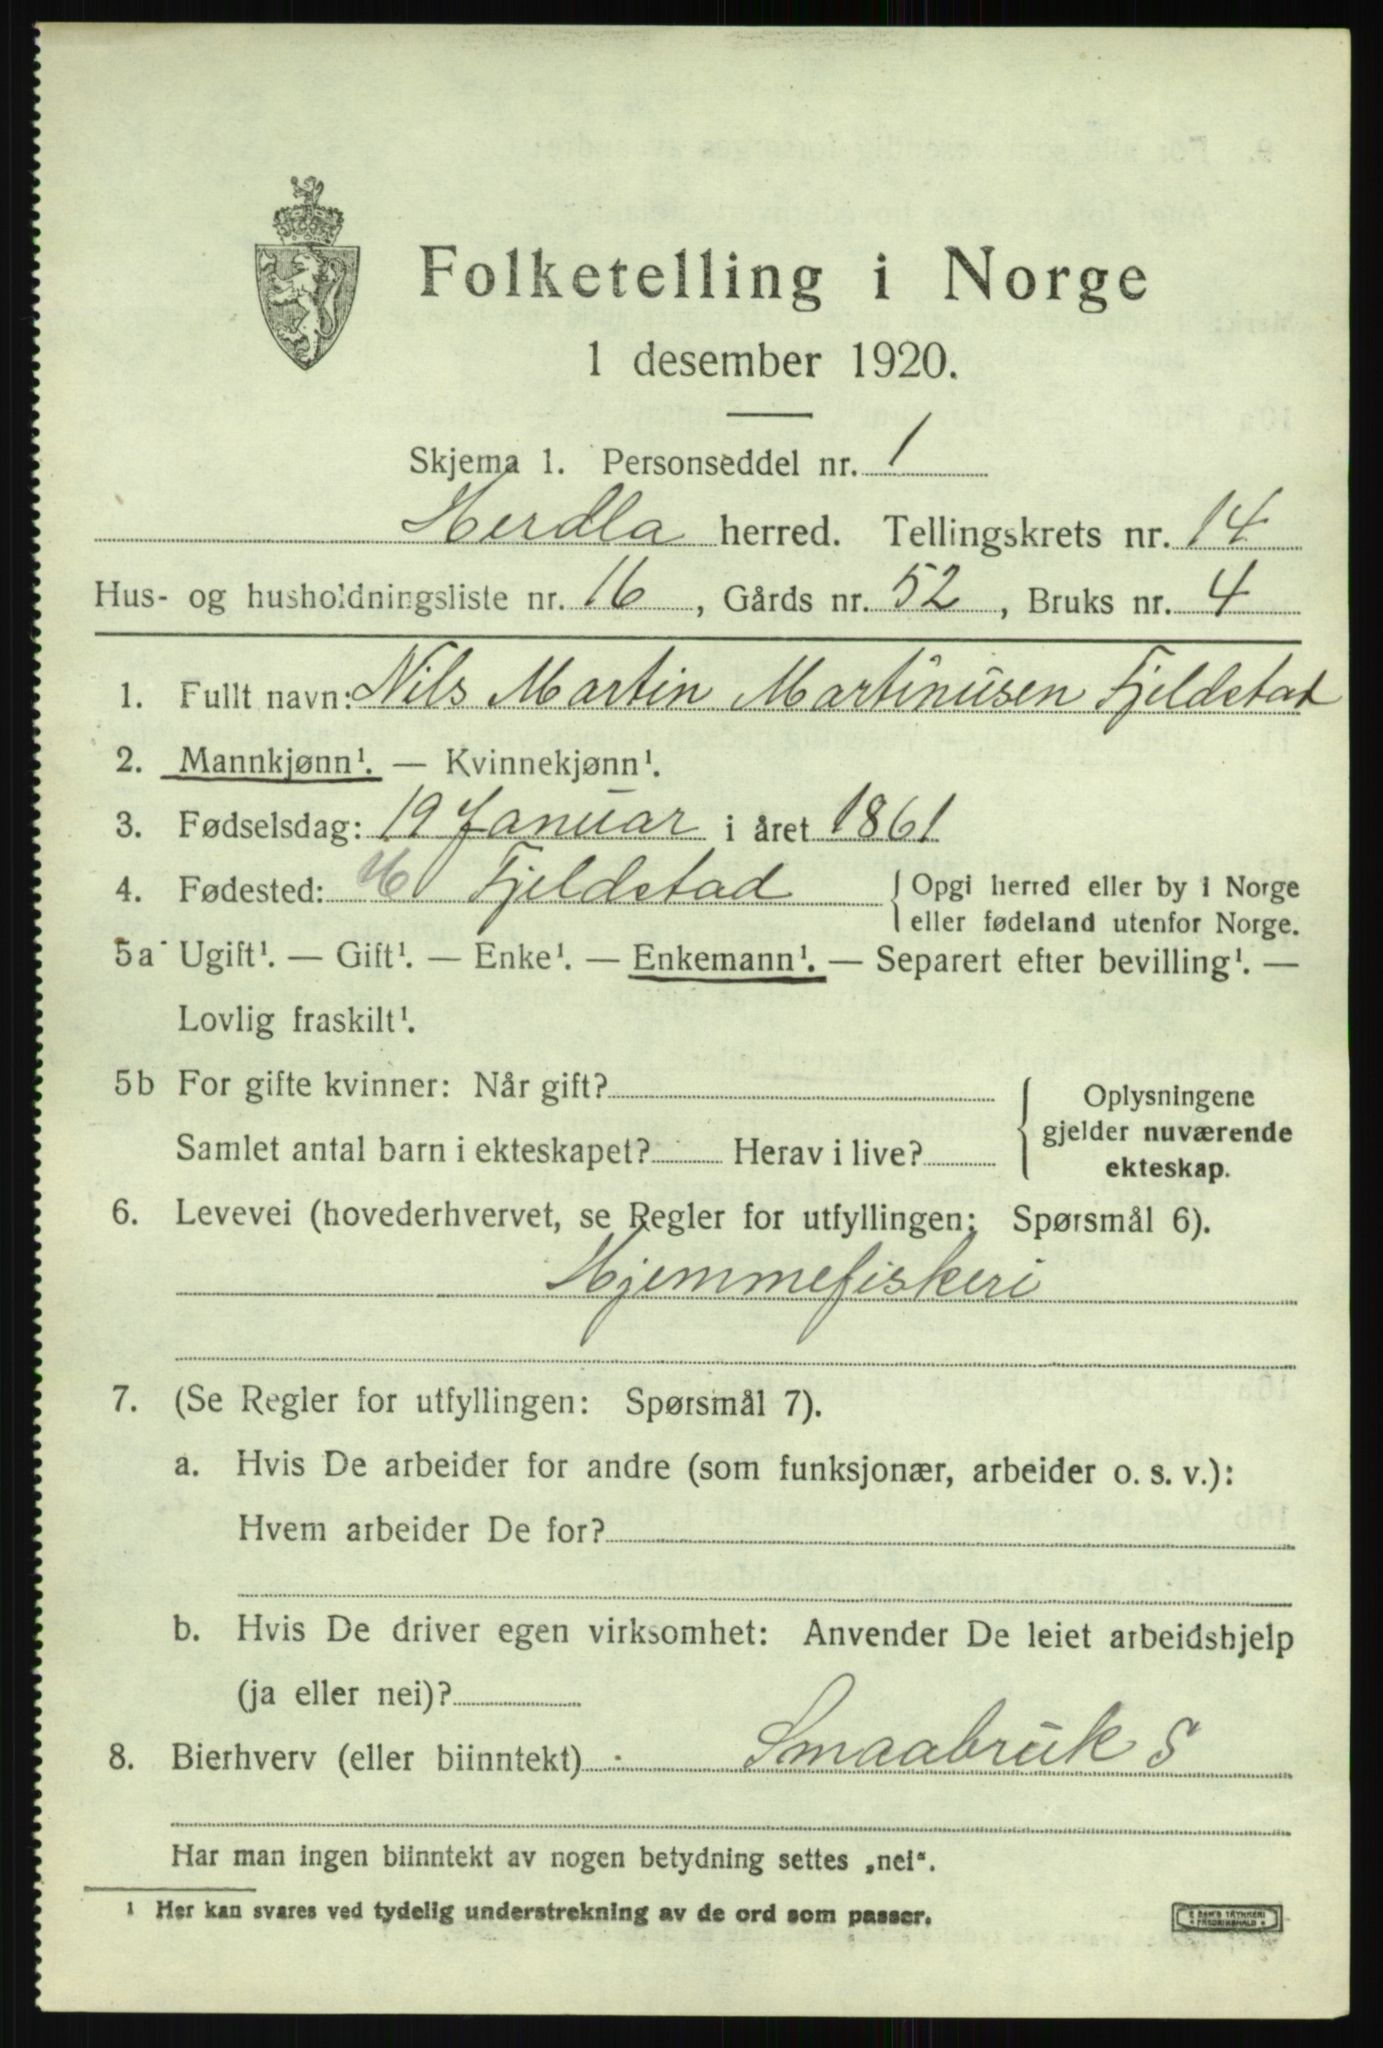 Folketelling i Norge
1 desember 1920.
Skjema 1. Personseddel nr. 1
Herdla herred. Tellingskrets nr. 14
Hus- og husholdningsliste nr. 16, Gårds nr. 52, Bruks nr. 4
1. Fullt navn: Nils Martin Martinusen Fjeldstad
2. Mannkjønn¹. — Kvinnekjønn¹.
3. Fødselsdag: 19 Januar i året 1861
4. Fødested: H Fjeldstad { Opgi herred eller by i Norge
eller fødeland utenfor Norge.
5a Ugift¹. — Gift¹. — Enke¹. — Enkemann¹. — Separert efter bevilling¹. —
Lovlig fraskilt¹.
5b For gifte kvinner: Når gift?
Samlet antal barn i ekteskapet? Herav i live?
{ Oplysningene
gjelder nuværende
ekteskap.
6. Levevei (hovederhvervet, se Regler for utfyllingen: Spørsmål 6).
Hjemmefiskeri
7. (Se Regler for utfyllingen: Spørsmål 7).
a. Hvis De arbeider for andre (som funksjonær, arbeider o. s. v.):
Hvem arbeider De for?
b. Hvis De driver egen virksomhet: Anvender De leiet arbeidshjelp
(ja eller nei)?
8. Bierhverv (eller biinntekt) Smaabruk S
Har man ingen biinntekt av nogen betydning settes „nei“.
¹ Her kan svares ved tydelig understrekning av de ord som passer.